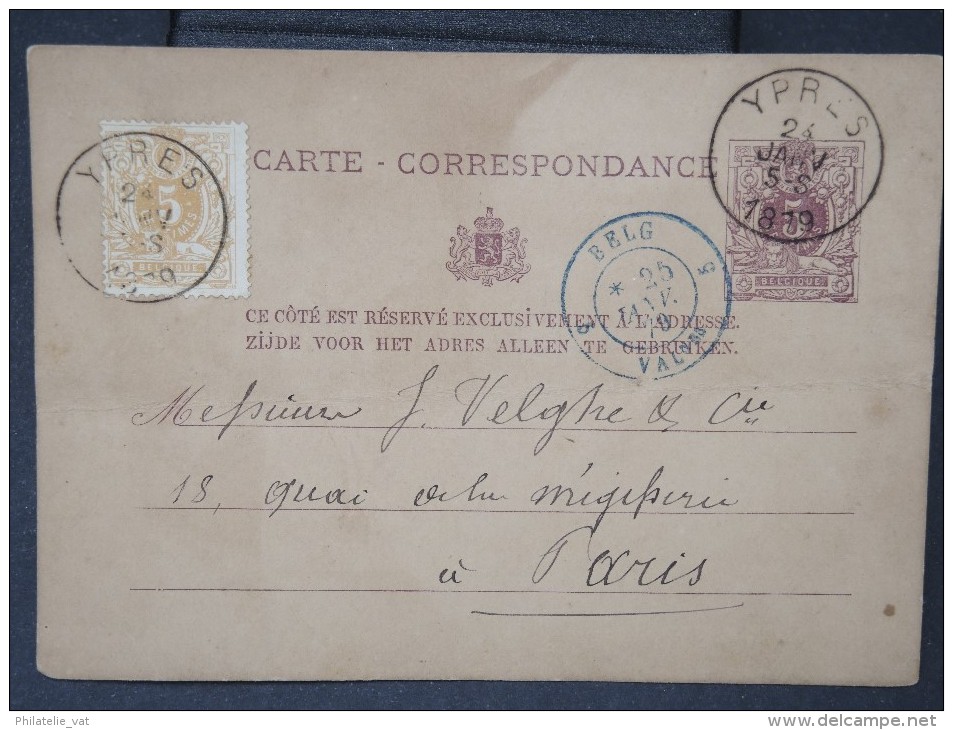 YPRES
24
JANV
5 S
1879
YPRES
24
5
S
79
BELGIQUE
CARTE - CORRESPONDANCE
5
BELGIQUE
BELG
5 5
* 25
JANV.
79
VALNES
CE CÔTÉ EST RÉSERVÉ EXCLUSIVEMENT À L'ADRESSE.
ZIJDE VOOR HET ADRES ALLEEN TE GEBRUIKEN.
Messieurs J. Velghe & Cie
18, quai de la mégisserie
à Paris
Philatelie_vat
www.delcampe.net